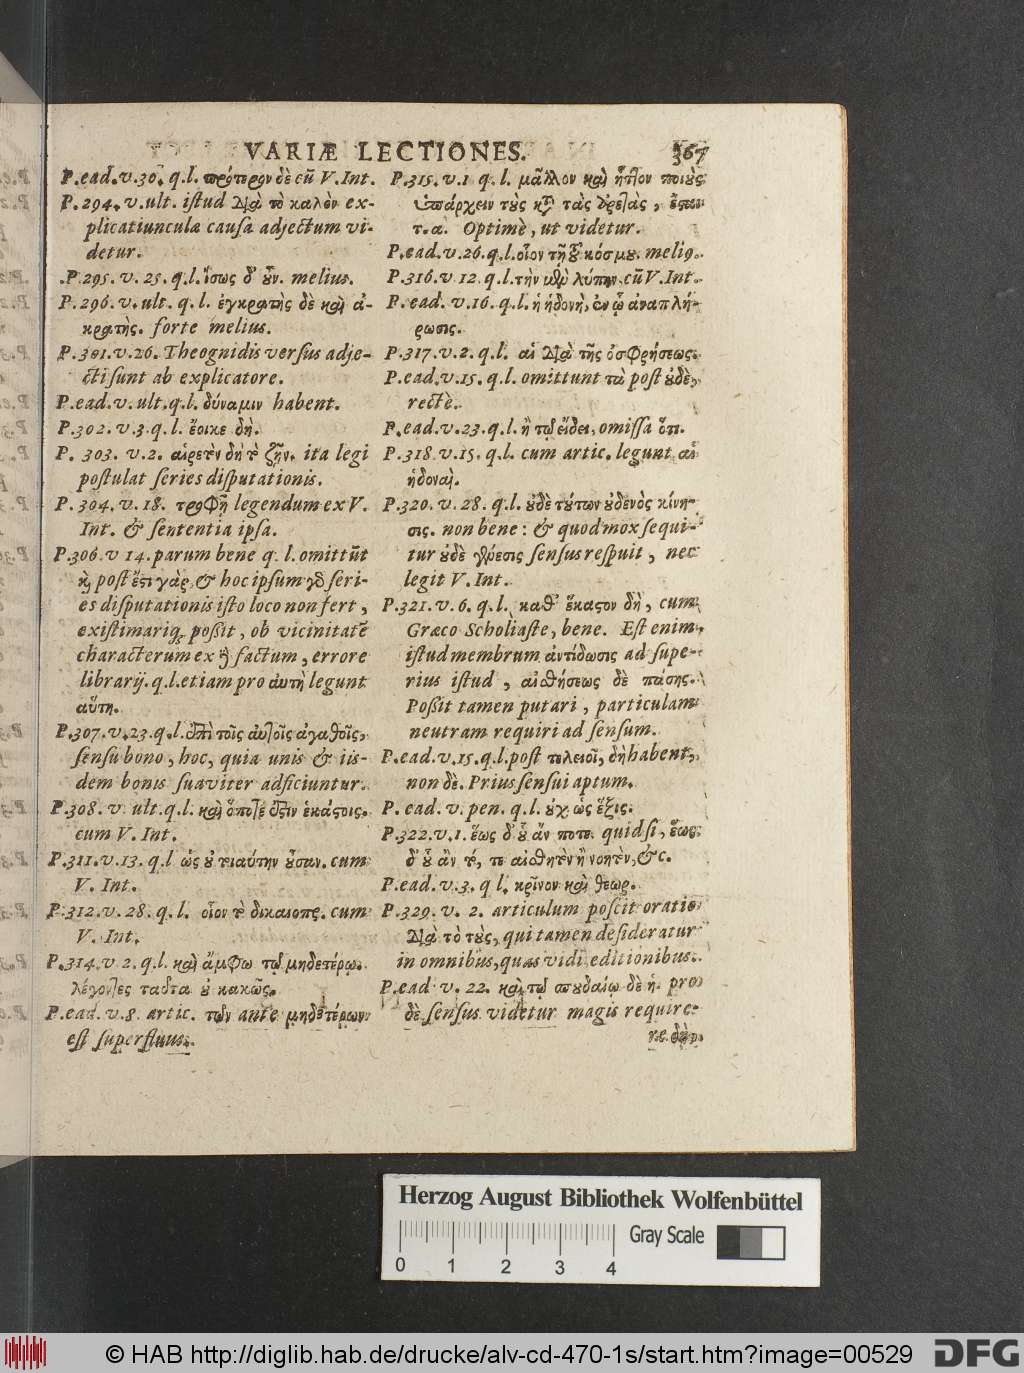 VARIÆ LECTIONES. 367
P. ead. v. 30. q. l. πρότερον δὲ cũ V. Int.
P. 294. v. ult. iſtud διὰ τὸ καλὸν ex-
plicatiunculæ cauſa adjectum vi-
detur.
P. 295. v. 25. q. l. ἴσως δ' οὖν. melius.
P. 296. v. ult. q. l. ἐγκρατὴς δὲ καὶ ἀ-
κρατὴς. forte melius.
P. 301. v. 26. Theognidis verſus adje-
cti ſunt ab explicatore.
P. ead. v. ult. q. l. δύναμιν habent.
P. 302. v. 3. q. l. ἔοικε δὴ.
P. 303. v. 2. αἱρετὸν δὴ τὸ ζῆν. ita legi
poſtulat ſeries diſputationis.
P. 304. v. 18. τροφῇ legendum ex V.
Int. & ſententia ipſa.
P. 306. v 14. parum bene q. l. omittũt
καὶ poſt ἔτι γὰρ, & hoc ipſum γὰρ ſeri-
es diſputationis iſto loco non fert,
exiſtimariq; poßit, ob vicinitatẽ
characterum ex καὶ factum, errore
librarij. q. l. etiam pro αυτὴ legunt
αὕτη.
P. 307. v. 23. q. l. ἐπὶ τοῖς αὐτοῖς ἀγαθοῖς,
ſenſu bono, hoc, quia unis & iis-
dem bonis ſuaviter adficiuntur.
P. 308. v. ult. q. l. καὶ ὅποτέ ἐστιν ἑκάστοις.
cum V. Int.
P. 311. v. 13. q. l ὡς οὐ τιαύτην οὖσαν. cum
V. Int.
P. 312. v. 28. q. l. οἷον τὸ δικαιοπς. cum
V. Int.
P. 314. v 2. q. l. καὶ ἄμφω τῷ μηδετέρῳ.
λέγοντες ταῦτα οὐ κακῶς.
P. ead. v. 8. artic. τῶν ante μηδετέρων
eſt ſuperfluus.
P. 315. v. 1 q. l. μᾶλλον καὶ ἧττον ποιοὺς
ὑπάρχειν τοὺς κατὰ τὰς ἀρετὰς,
τ. α. Optimè, ut videtur.
P. ead. v. 26. q. l. οἷον τῇ τοῦ κόσμου. melio.
P. 316. v 12. q. l. τὴν μὲν λύπην. cũ V. Int.
P. ead. v. 16. q. l. ἡ ἡδονὴ, ἐν ᾧ ἀναπλή-
ρωσις.
P. 317. v. 2. q. l. αἱ διὰ τῆς ὀσφρήσεως.
P. ead. v. 15. q. l. omittunt τὰ poſt οὐδὲ,
rectè.
P. ead. v. 23. q. l. ἢ τῷ εἴδει, omiſſa ὅτι.
P. 318. v. 15. q. l. cum artic. legunt αἱ
ἡδοναὶ.
P. 320. v. 28. q. l. οὐδὲ τούτων οὐδενὸς κίνη-
σις. non bene: & quod mox ſequi-
tur οὐδὲ γένεσις ſenſus reſpuit, nec
legit V. Int.
P. 321. v. 6. q. l. καθ' ἕκαστον δὴ, cum
Græco Scholiaſte, bene. Eſt enim
iſtud membrum ἀντίδωσις ad ſupe-
rius iſtud, αἰσθήσεως δὲ πάσης.
Poßit tamen putari, particulam
neutram requiri ad ſenſum.
P. ead. v. 15. q. l. poſt τελειοῖ, δὴ habent,
non δὲ. Prius ſenſui aptum.
P. ead. v. pen. q. l. οὐχ ὡς ἕξις.
P. 322. v. 1. ἕως δ' οὗ ἄν ποτε. quid ſi, ἕως
δ' οὗ ἂν τό, τε αἰσθητὸν ἢ νοητὸν, &c.
P. ead. v. 3. q l. κρῖνον καὶ θεωρ.
P. 329. v. 2. articulum poſcit oratio
διὰ τὸ τοὺς, qui tamen deſideratur
in omnibus, quas vidi editionibus.
P. ead v. 22. καὶ τῷ σπουδαίῳ δὲ ἡ. pro
δὲ ſenſus videtur magis require-
re δὴ.
Herzog August Bibliothek Wolfenbüttel
Gray Scale
0 1 2 3 4
© HAB http://diglib.hab.de/drucke/alv-cd-470-1s/start.htm?image=00529 DFG